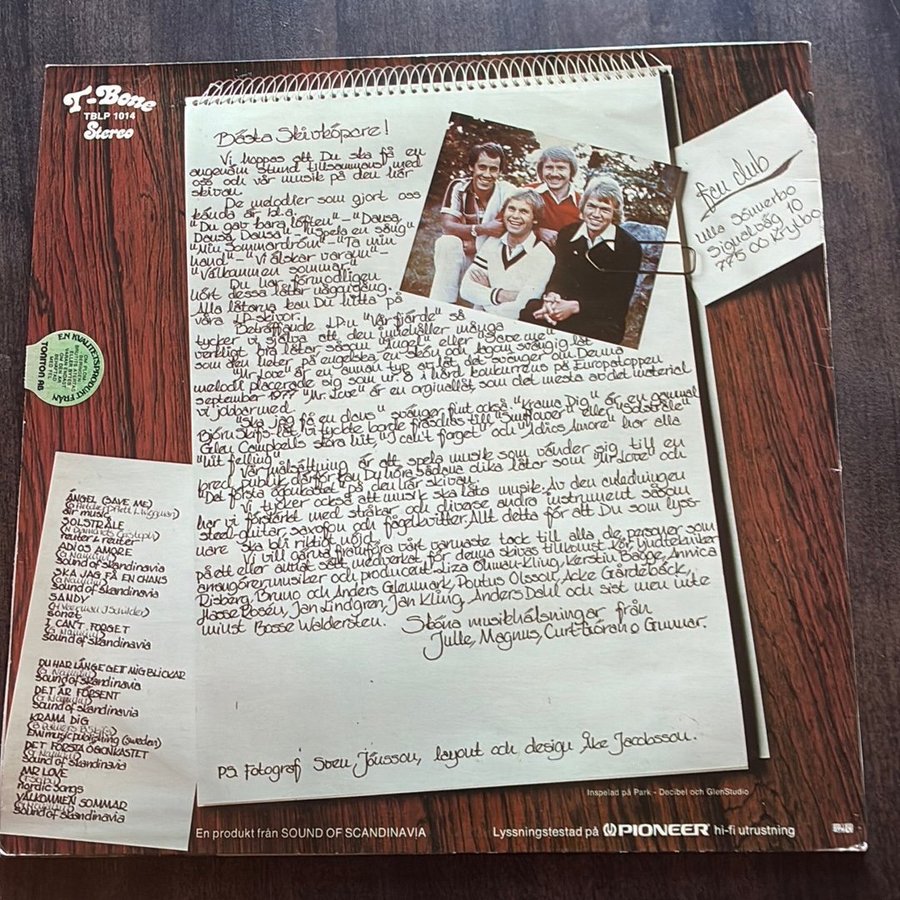 T-Bone
TBLP 1014
Stereo
Bästa Skivköpare!
Vi hoppas att Du ska få en
angenäm stund tillsammans med
oss och vår musik på den här
skivan.
De melodier som gjort oss
kända är bl.a.
"Du gav bara löften"-"Dansa,
Dansa, Dansa"-"Spela en sång"
"Min Sommardröm"-"Ta min
hand"-"Vi älskar varann"-
"Välkommen sommar"
Du har förmodligen
hört dessa låtar någongång.
Alla låtarna kan Du hitta på
våra LP-skivor.
Beträffande LP:n "Vår fjärde" så
tycker vi själva att den innehåller många
verkligt bra låtar såsom "Ängel" eller "Save me"
som den heter på engelska en skön och lagom svängig låt
"Mr Love" är en annan typ av låt det svänger om Denna
melodi placerade sig som nr. 8 i hård konkurrens på Europatoppen
september 1977 "Mr. Love" är en orginallåt, som det mesta av det material
vi jobbar med.
"Ska jag få en chans" svänger fint också "Krama Dig" är en gammal
Björn Skifs låt vi tyckte borde fräschas till "Sunflower" eller "Solstråle"
Glen Campbells stora hit, "I can't forget" och "Adios Amore" har alla
"hit feeling"
Vår målsättning är att spela musik som vänder sig till en
bred publik därför kan Du höra sådana olika låtar som "Mr Love" och
"Det första ögonkastet" på den här skivan.
Vi tycker också att musik ska låta musik. Av den anledningen
har vi förstärkt med stråkar och diverse andra instrument såsom
steel-guitar, saxofon och fågelkvitter. Allt detta för att Du som lyss-
nare ska bli riktigt nöjd.
Vi vill gärna framföra vårt varmaste tack till alla de personer som
på ett eller annat sätt medverkat för denna skivas tillkomst kör ljudtekniker
arrangörer musiker och producent Liza Öhman-Kling, Kerstin Bagge, Annica
Risberg, Bruno och Anders Glenmark, Pontus Olsson, Acke Gårdebäck,
Hasse Rosén, Jan Lindgren, Jan Kling, Anders Dahl och sist men inte
minst Bosse Waldersten.
Sköna musikhälsningar från
Julle, Magnus, Curt Göran o Gunnar.
PS. Fotograf Sven Jönsson, layout och design Åke Jacobsson.
fan club
Ulla Sönnerbo
Signalväg 10
775 00 Krylbo
EN KVALITETSPRODUKT FRÅN
TOONTON AB
ÄNGEL (SAVE ME)
air music
SOLSTRÅLE
reuter & reuter
ADIOS AMORE
Sound of Scandinavia
SKA JAG FÅ EN CHANS
Sound of Scandinavia
SANDY
sonet
I CAN'T FORGET
Sound of Skandinavia
DU HAR LÄNGE GETT MIG BLICKAR
Sound of Skandinavia
DET ÄR FÖRSENT
Sound of Skandinavia
KRAMA DIG
EMI music publishing (sweden)
DET FÖRSTA ÖGONKASTET
Sound of Skandinavia
MR LOVE
Nordic Songs
VÄLKOMMEN SOMMAR
Sound of Skandinavia
Inspelad på Park - Decibel och GlenStudio
En produkt från SOUND OF SCANDINAVIA
Lyssningstestad på PIONEER hi-fi utrustning